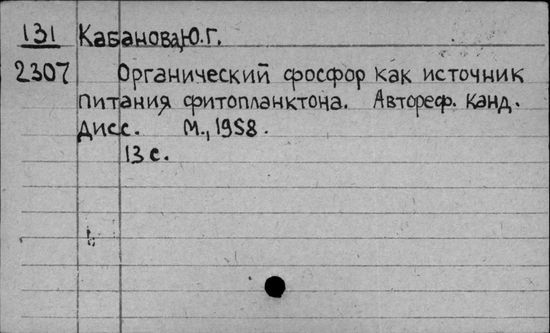 131 Кабанова, Ю.Г.
2307 Органический фосфор как источник
питания фитопланктона. Автореф. канд.
дисс. М., 1958.
13 с.